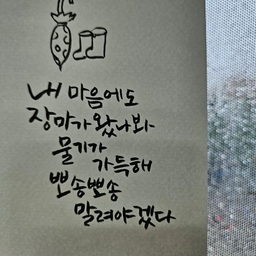 내 마음에도
장마가 왔나봐
물기가
가득해
뽀송뽀송
말려야겠다